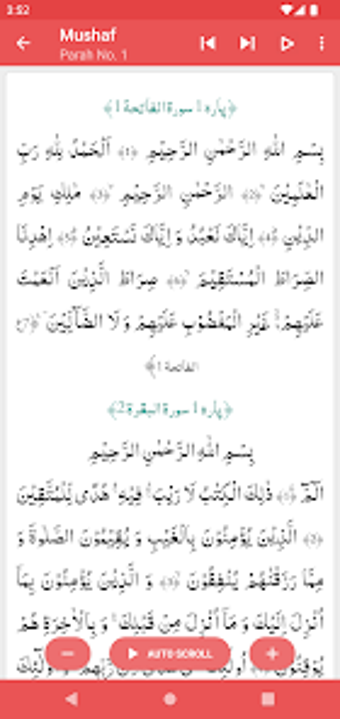 3:52
Mushaf
Parah No. 1
﴿پاره 1 سورة الفاتحة 1﴾
بِسْمِ اللهِ الرَّحْمٰنِ الرَّحِيْمِ ﴿1﴾ اَلْحَمْدُ لِلّٰهِ رَبِّ
الْعٰلَمِيْنَ ﴿2﴾ الرَّحْمٰنِ الرَّحِيْمِ ﴿3﴾ مٰلِكِ يَوْمِ
الدِّيْنِ ﴿4﴾ اِيَّاكَ نَعْبُدُ وَ اِيَّاكَ نَسْتَعِيْنُ ﴿5﴾ اِهْدِنَا
الصِّرَاطَ الْمُسْتَقِيْمَ ﴿6﴾ صِرَاطَ الَّذِيْنَ اَنْعَمْتَ
عَلَيْهِمْ غَيْرِ الْمَغْضُوْبِ عَلَيْهِمْ وَ لَا الضَّآلِّيْنَ ﴿7
الفاتحة 1﴾
﴿پاره 1 سورة البقرة 2﴾
بِسْمِ اللهِ الرَّحْمٰنِ الرَّحِيْمِ
الٓمّٓ ﴿1﴾ ذٰلِكَ الْكِتٰبُ لَا رَيْبَ فِيْهِ هُدًى لِّلْمُتَّقِيْنَ
﴿2﴾ الَّذِيْنَ يُؤْمِنُوْنَ بِالْغَيْبِ وَ يُقِيْمُوْنَ الصَّلٰوةَ وَ
مِمَّا رَزَقْنٰهُمْ يُنْفِقُوْنَ ﴿3﴾ وَ الَّذِيْنَ يُؤْمِنُوْنَ بِمَآ
اُنْزِلَ اِلَيْكَ وَ مَآ اُنْزِلَ مِنْ قَبْلِكَ وَ بِالْاٰخِرَةِ هُمْ
يُوْقِنُوْنَ
AUTO SCROLL